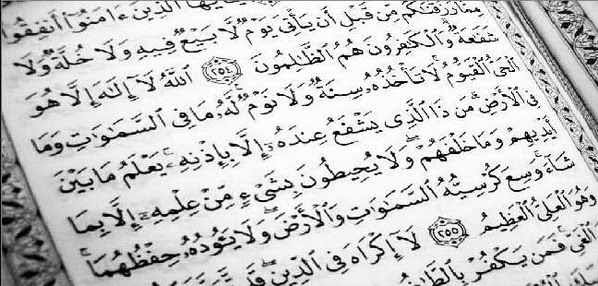 ٱلَّذِينَ ءَامَنُوٓا۟ أَنفِقُوا۟
مِمَّا رَزَقْنَٰكُم مِّن قَبْلِ أَن يَأْتِىَ يَوْمٌ لَّا بَيْعٌ فِيهِ وَلَا خُلَّةٌ وَلَا
شَفَٰعَةٌ وَٱلْكَٰفِرُونَ هُمُ ٱلظَّٰلِمُونَ ٢٥٤ ٱللَّهُ لَآ إِلَٰهَ إِلَّا هُوَ
ٱلْحَىُّ ٱلْقَيُّومُ لَا تَأْخُذُهُۥ سِنَةٌ وَلَا نَوْمٌ لَّهُۥ مَا فِى ٱلسَّمَٰوَٰتِ وَمَا
فِى ٱلْأَرْضِ مَن ذَا ٱلَّذِى يَشْفَعُ عِندَهُۥٓ إِلَّا بِإِذْنِهِۦ يَعْلَمُ مَا بَيْنَ
أَيْدِيهِمْ وَمَا خَلْفَهُمْ وَلَا يُحِيطُونَ بِشَىْءٍ مِّنْ عِلْمِهِۦٓ إِلَّا بِمَا
شَآءَ وَسِعَ كُرْسِيُّهُ ٱلسَّمَٰوَٰتِ وَٱلْأَرْضَ وَلَا يَـُٔودُهُۥ حِفْظُهُمَا
وَهُوَ ٱلْعَلِىُّ ٱلْعَظِيمُ ٢٥٥ لَآ إِكْرَاهَ فِى ٱلدِّينِ قَد تَّبَيَّنَ
ٱلْغَىِّ فَمَن يَكْفُرْ